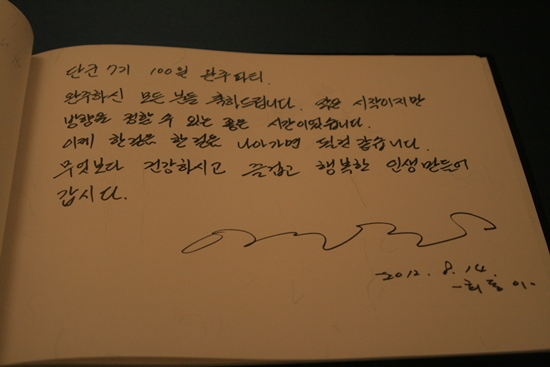 단군 7기 100일 완주파티.
완주하신 모든 분들 축하드립니다. 작은 시작이지만
방향을 정할 수 있는 좋은 시간이었습니다.
이제 한걸음 한걸음 나아가면 될것 같습니다.
무엇보다 건강하시고 즐겁고 행복한 인생만들어
갑시다.
-2012. 8. 14.